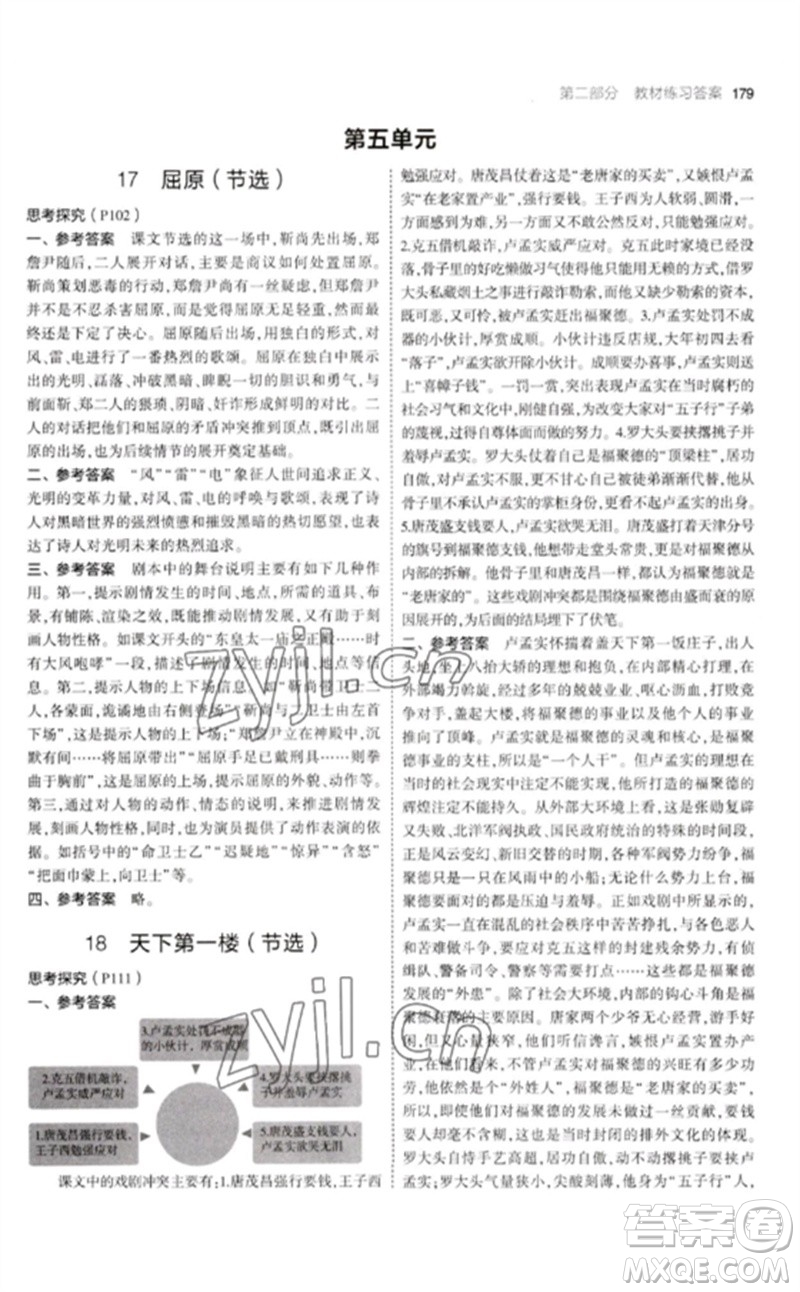 第二部分 教材练习答案 179
第五单元
17 屈原（节选）
思考探究（P102）
一、参考答案 课文节选的这一场中，靳尚先出场，郑
詹尹随后，二人展开对话，主要是商议如何处置屈原。
靳尚策划恶毒的行动，郑詹尹尚有一丝疑虑，但其动机
并不是不忍杀害屈原，而是觉得屈原无足轻重，所以最
终还是下定了决心。屈原出场后，用独白的形式，对
风、雷、电进行了一番热烈的歌颂。屈原的出场，表现
出的光明、磊落、冲破黑暗、睥睨一切的胆识和勇气，
与前面靳、郑二人的猥琐、阴暗、奸诈形成鲜明的对比。二
人的对话把他们和屈原的矛盾冲突推到了顶点，为屈
原的出场，也为后续情节的展开奠定基础。
二、参考答案 “风”“雷”“电”象征人世间追求正义、
光明的变革力量，对风、雷、电的呼唤与歌颂，表现了诗
人对黑暗世界的强烈愤懑和摧毁黑暗的热切愿望，也表
达了诗人对光明未来的热烈追求。
三、参考答案 剧本中的舞台说明主要有如下几种作
用。第一，提示剧情发生的时间、地点，所需的道具、布
景，有铺陈、渲染之效，既能推动剧情发展，又有助于刻
画人物性格。如课文开头的“东皇太一庙之正殿……
有大风咆哮”一段，描述了剧情发生的时间、地点等信
息。第二，提示人物的上场、下场，如“靳尚与卫士二人，
各蒙面，诡谲地由右侧登场”“卫士二人下场”“郑詹尹立在神案前，沉
默有间……将屈原带出”“屈原手足已戴刑具……则拳
曲于胸前”，提示了人物的上场，屈原的外貌、动作等。
第三，通过对人物的动作、情态的说明，来推动剧情发
展，刻画人物性格，同时，也为演员提供了动作表演的依
据。如括号中的“命卫士乙”“迟疑地”“惊异”“含怒”
“把面巾蒙上，向卫士”等。
四、参考答案 略。
18 天下第一楼（节选）
思考探究（P111）
一、参考答案
3.卢孟实处罚不成器
的小伙计，厚赏成顺
2.克五借机敲诈，
卢孟实威严应对
4.罗大头要挟撂挑
子并羞辱卢孟实
1.唐茂昌强行要钱，
王子西勉强应对
5.唐茂盛支钱要人，
卢孟实欲哭无泪
课文中的戏剧冲突主要有：1.唐茂昌强行要钱，王子西
勉强应对。唐茂昌仗着这是“老唐家的买卖”，又嫉恨卢孟
实“在老家置产业”，强行要钱。王子西为人软弱、圆滑，一
方面感到为难，另一方面又不敢公然反对，只能勉强应对。
2.克五借机敲诈，卢孟实威严应对。克五此时家境已经没
落，骨子里的好吃懒做习气使其采用无赖的方式，借罗
大头私藏烟土之事进行敲诈勒索，而这是他仅剩的资本，
既可恶，又可怜，被卢孟实赶出福聚德。3.卢孟实处罚不成
器的小伙计，厚赏成顺。小伙计违反店规，大年初四去看
“落子”，卢孟实欲开除小伙计。成顺要办喜事，卢孟实赏了
上“喜幛子钱”。一罚一赏，突出表现了卢孟实在当时腐朽的
社会习气和文化中，刚健自强，为改变大家对“五子行”子弟
的蔑视，过上体面生活而作出的努力。4.罗大头要挟撂挑子并
羞辱卢孟实。罗大头仗着自己是福聚德的“顶梁柱”，居功
自傲，对卢孟实不服，更不甘心自己被徒弟渐渐代替，也从
骨子里不承认卢孟实的掌柜身份，不屑卢孟实的出身。
5.唐茂盛支钱要人，卢孟实欲哭无泪。唐茂盛打着天津分号
的旗号到福聚德支钱，他想带走堂头常贵，更是对福聚德从
内部的拆解。他和唐茂昌一样，都对福聚德不管不顾，只知
这是“老唐家的”。这些戏剧冲突都是围绕福聚德由盛而衰的原
因展开的，并为后面的结局埋下了伏笔。
二、参考答案 卢孟实怀揣着盖天下第一饭庄子，出人
头地，坐上八抬大轿的理想和抱负，在内部精心打理，
在外部竭力斡旋，多年的兢兢业业，摸爬滚打，打败竞
争对手，盖起大楼，将福聚德的事业以及他个人的事业
推向了顶峰。卢孟实是福聚德的灵魂和核心，是福聚
德事业的支柱，所以说“一个人干”。但卢孟实的理想
在当时的社会中注定不能实现，他所打造的福聚德的
辉煌注定不能长久。从外部大环境上看，这是张勋复辟
又失败、北洋军阀执政、国民政府统治的特殊的时间段，
正是风云变幻、新旧交替的时期，各种军阀势力纷争，福
聚德只是一个在风雨中的小船；无论什么势力上台，福
聚德所面对的都是压迫与羞辱。正如戏剧中所展示的，
卢孟实一直在混乱的社会秩序中苦苦挣扎，与克五之流
作着斗争。这一方面反映出克五的封建残余势力，侦缉
队、警备司令、宫里当差的……这些都是福聚德衰落的
“外患”。除了社会大环境，内部的钩心斗角是福聚
德衰落的内因。唐家两个少爷无心经营，游手好闲，福
聚德就是他们的钱柜子；他们听信谗言，嫉恨卢孟实，
在他们看来，不管卢孟实为福聚德的兴旺有多大功劳，
他也只是个“外姓人”，福聚德是“老唐家的买卖”。所
以，卢孟实的理想得不到唐家的丝毫支持。王子西、
罗大头等人更是不能包容，这也是当时封闭的排外文化的体现。
罗大头自恃是烤鸭子的名厨，居功自傲，动不动撂挑子要挟卢
孟实；罗大头气量狭小，尖酸刻薄，身为“五子行”人，
zyjl.cn
zyjl.cn
答案圈
MXQE.COM